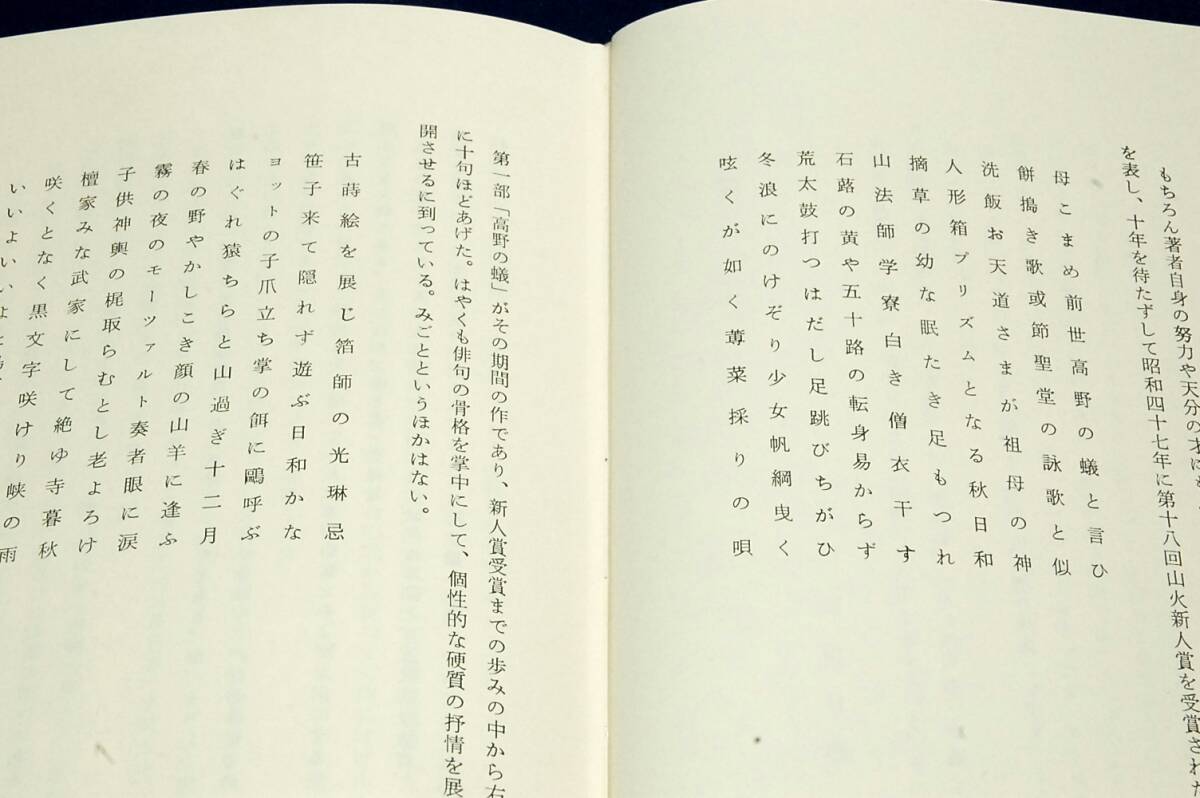 もちろん著者自身の努力や天分の才にも
を表し、十年を待たずして昭和四十七年に第十八回山火新人賞を受賞された
母こまめ前世高野の蟻と言ひ
餅搗き歌或節聖堂の詠歌と似
洗飯お天道さまが祖母の神
人形箱プリズムとなる秋日和
摘草の幼な眠たき足もつれ
山法師学寮白き僧衣干す
石蕗の黄や五十路の転身易からず
荒太鼓打つはだし足跳びちがひ
冬浪にのけぞり少女帆綱曳く
呟くが如く蓴菜採りの唄
第一部「高野の蟻」がその期間の作であり、新人賞受賞までの歩みの中から右
に十句ほどあげた。はやくも俳句の骨格を掌中にして、個性的な硬質の抒情を展
開させるに到っている。みごとというほかはない。
古蒔絵を展じ箔師の光琳忌
笹子来て隠れず遊ぶ日和かな
ョットの子爪立ち掌の餌に鷗呼ぶ
はぐれ猿ちらと山過ぎ十二月
春の野やかしこき顔の山羊に逢ふ
霧の夜のモーツァルト奏者眼に涙
子供神輿の梶取らむとし老よろけ
檀家みな武家にして絶ゆ寺暮秋
咲くとなく黒文字咲けり峡の雨
いいよいいよと